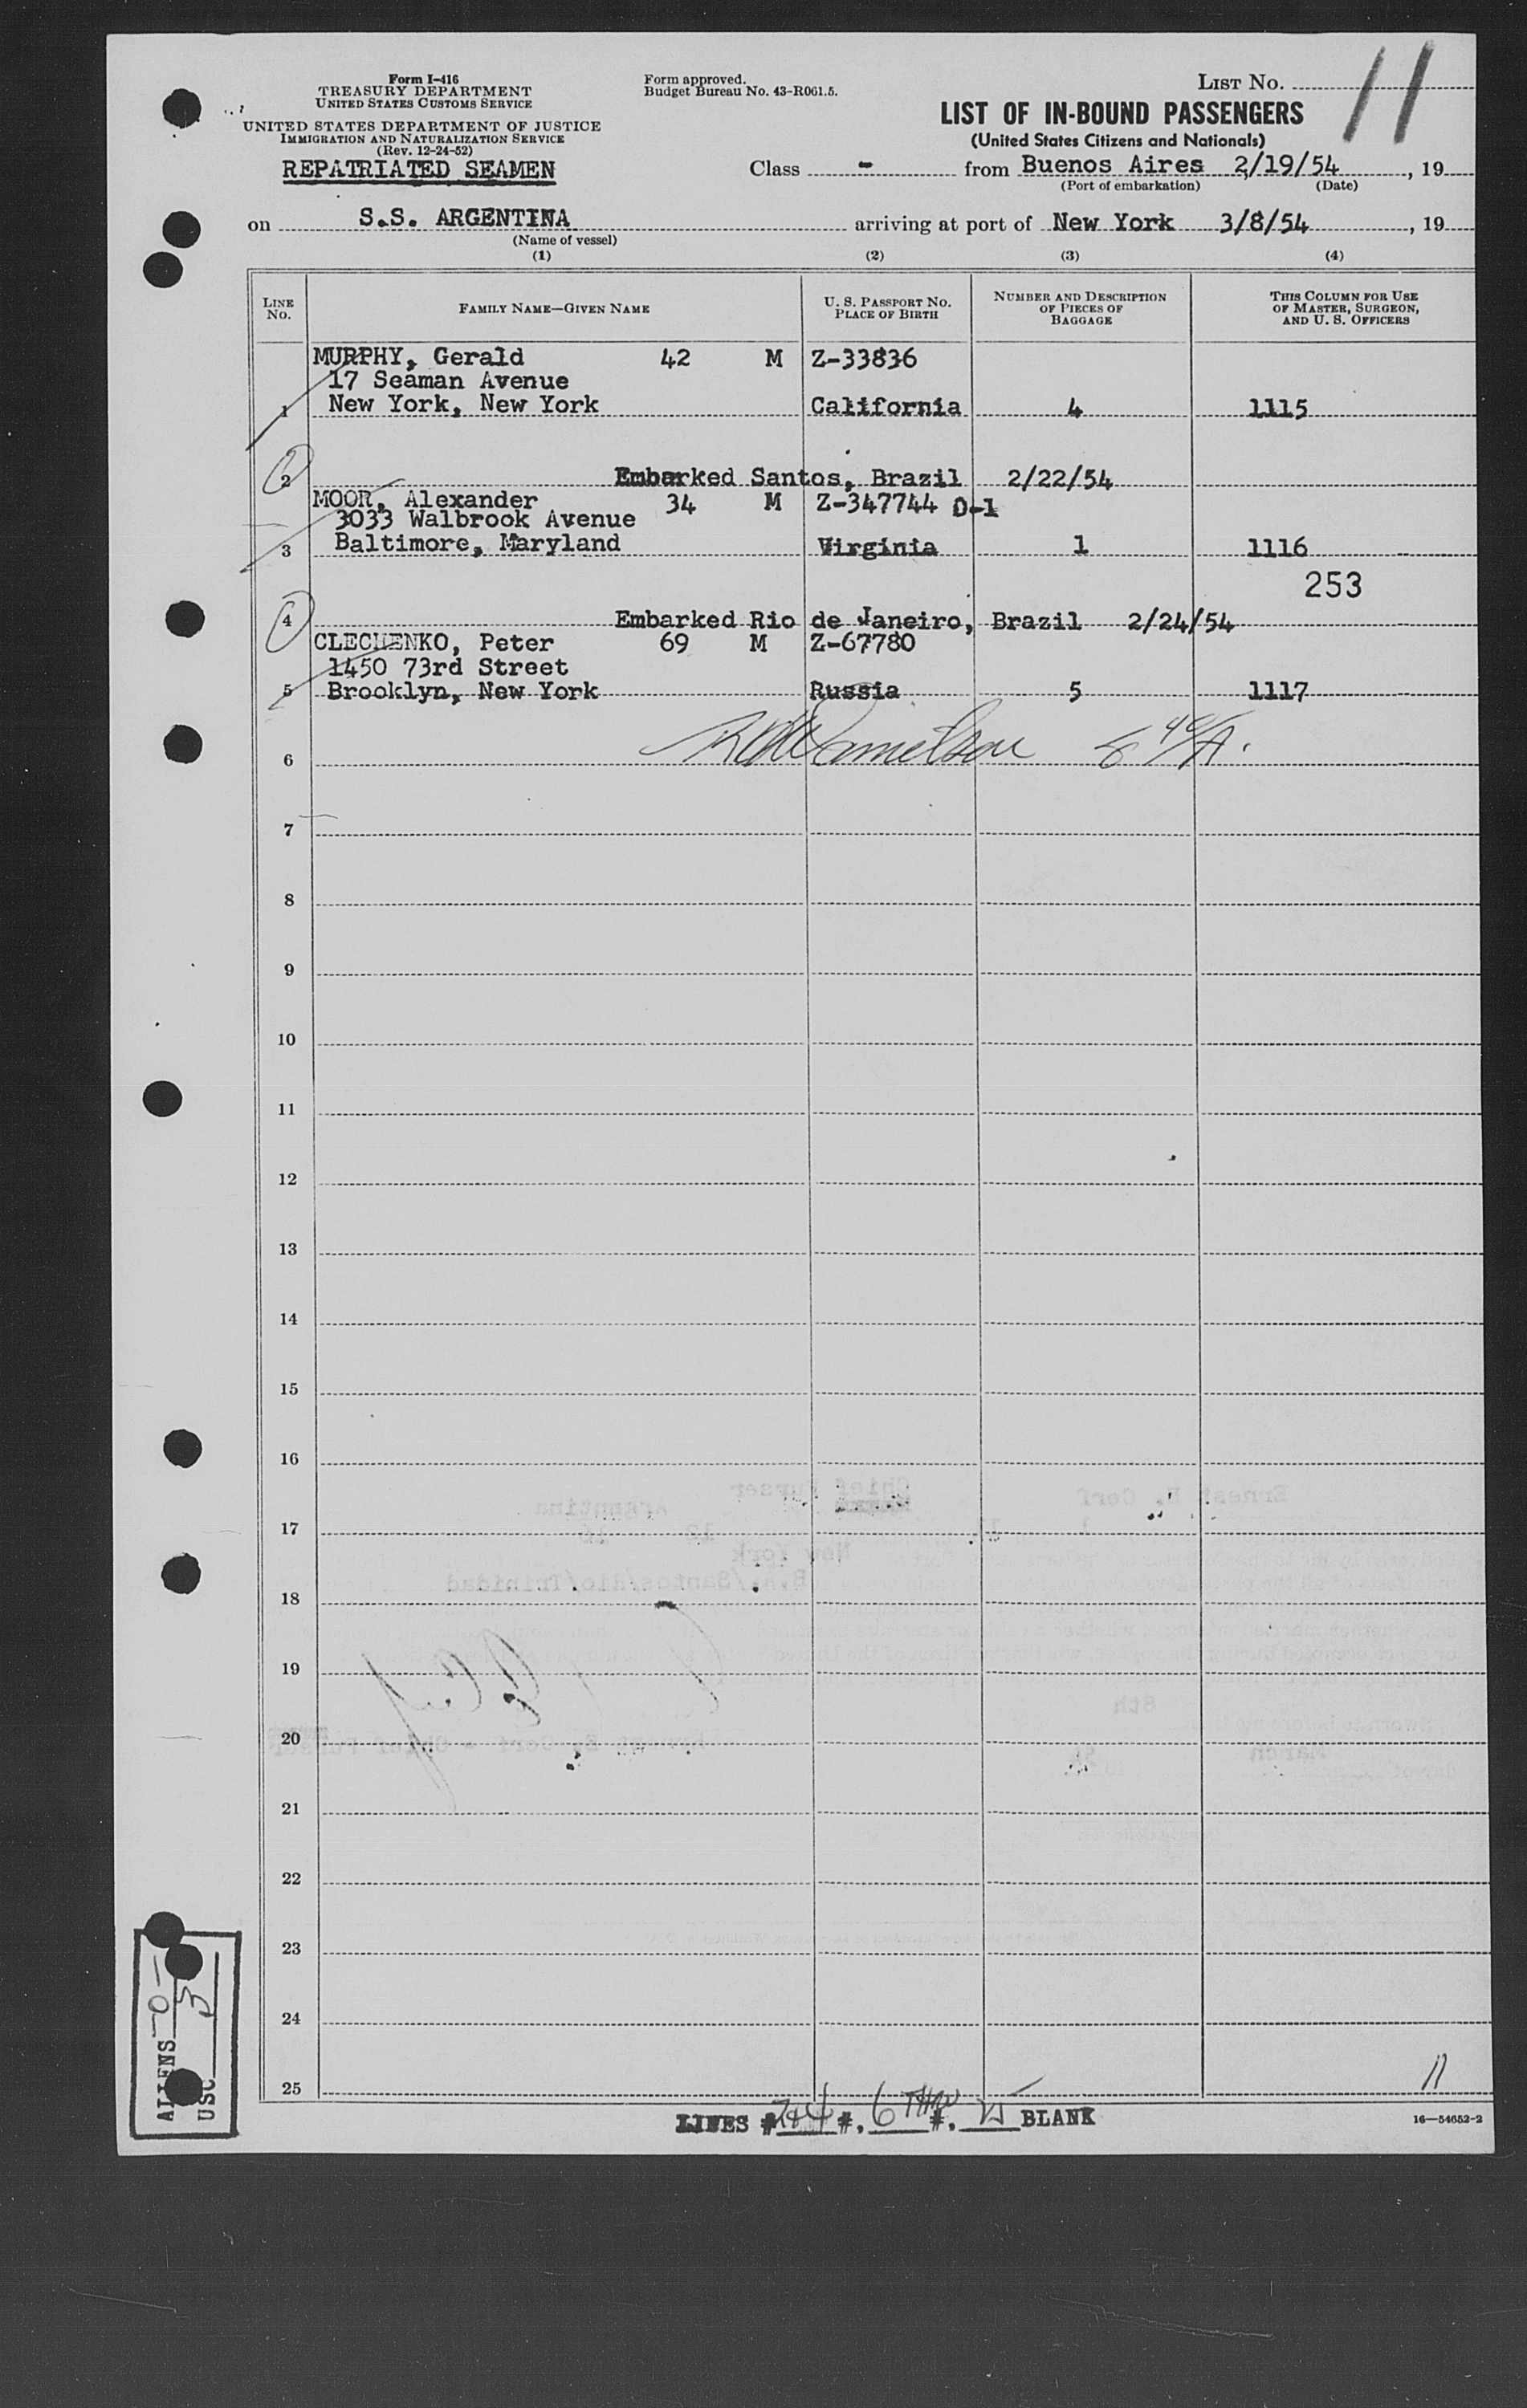 Form I-416
TREASURY DEPARTMENT
UNITED STATES CUSTOMS SERVICE
UNITED STATES DEPARTMENT OF JUSTICE
IMMIGRATION AND NATURALIZATION SERVICE
(Rev. 12-24-52)
REPATRIATED SEAMEN
Form approved.
Budget Bureau No. 43-R061.5.
LIST No. 11
LIST OF IN-BOUND PASSENGERS
(United States Citizens and Nationals)
Class - from Buenos Aires 2/19/54, 19
(Port of embarkation) (Date)
on S.S. ARGENTINA arriving at port of New York 3/8/54, 19
(Name of vessel)
(1) (2) (3) (4)
LINE NO. FAMILY NAME—GIVEN NAME U. S. PASSPORT NO. PLACE OF BIRTH NUMBER AND DESCRIPTION OF PIECES OF BAGGAGE THIS COLUMN FOR USE OF MASTER, SURGEON, AND U. S. OFFICERS
MURPHY, Gerald 42 M Z-33836
17 Seaman Avenue
1 New York, New York California 4 1115
2 Embarked Santos, Brazil 2/22/54
MOOR, Alexander 34 M Z-347744 D-1
3033 Walbrook Avenue
3 Baltimore, Maryland Virginia 1 1116
253
4 Embarked Rio de Janeiro, Brazil 2/24/54
CLECHENKO, Peter 69 M Z-67780
1450 73rd Street
5 Brooklyn, New York Russia 5 1117
6
7
8
9
10
11
12
13
14
15
16
17
18
19
20
21
22
23
24
25
11
LINES #2&4 #, 6 THRU #, 25 BLANK
16—54652-2
ALIENS -0-
USC 3